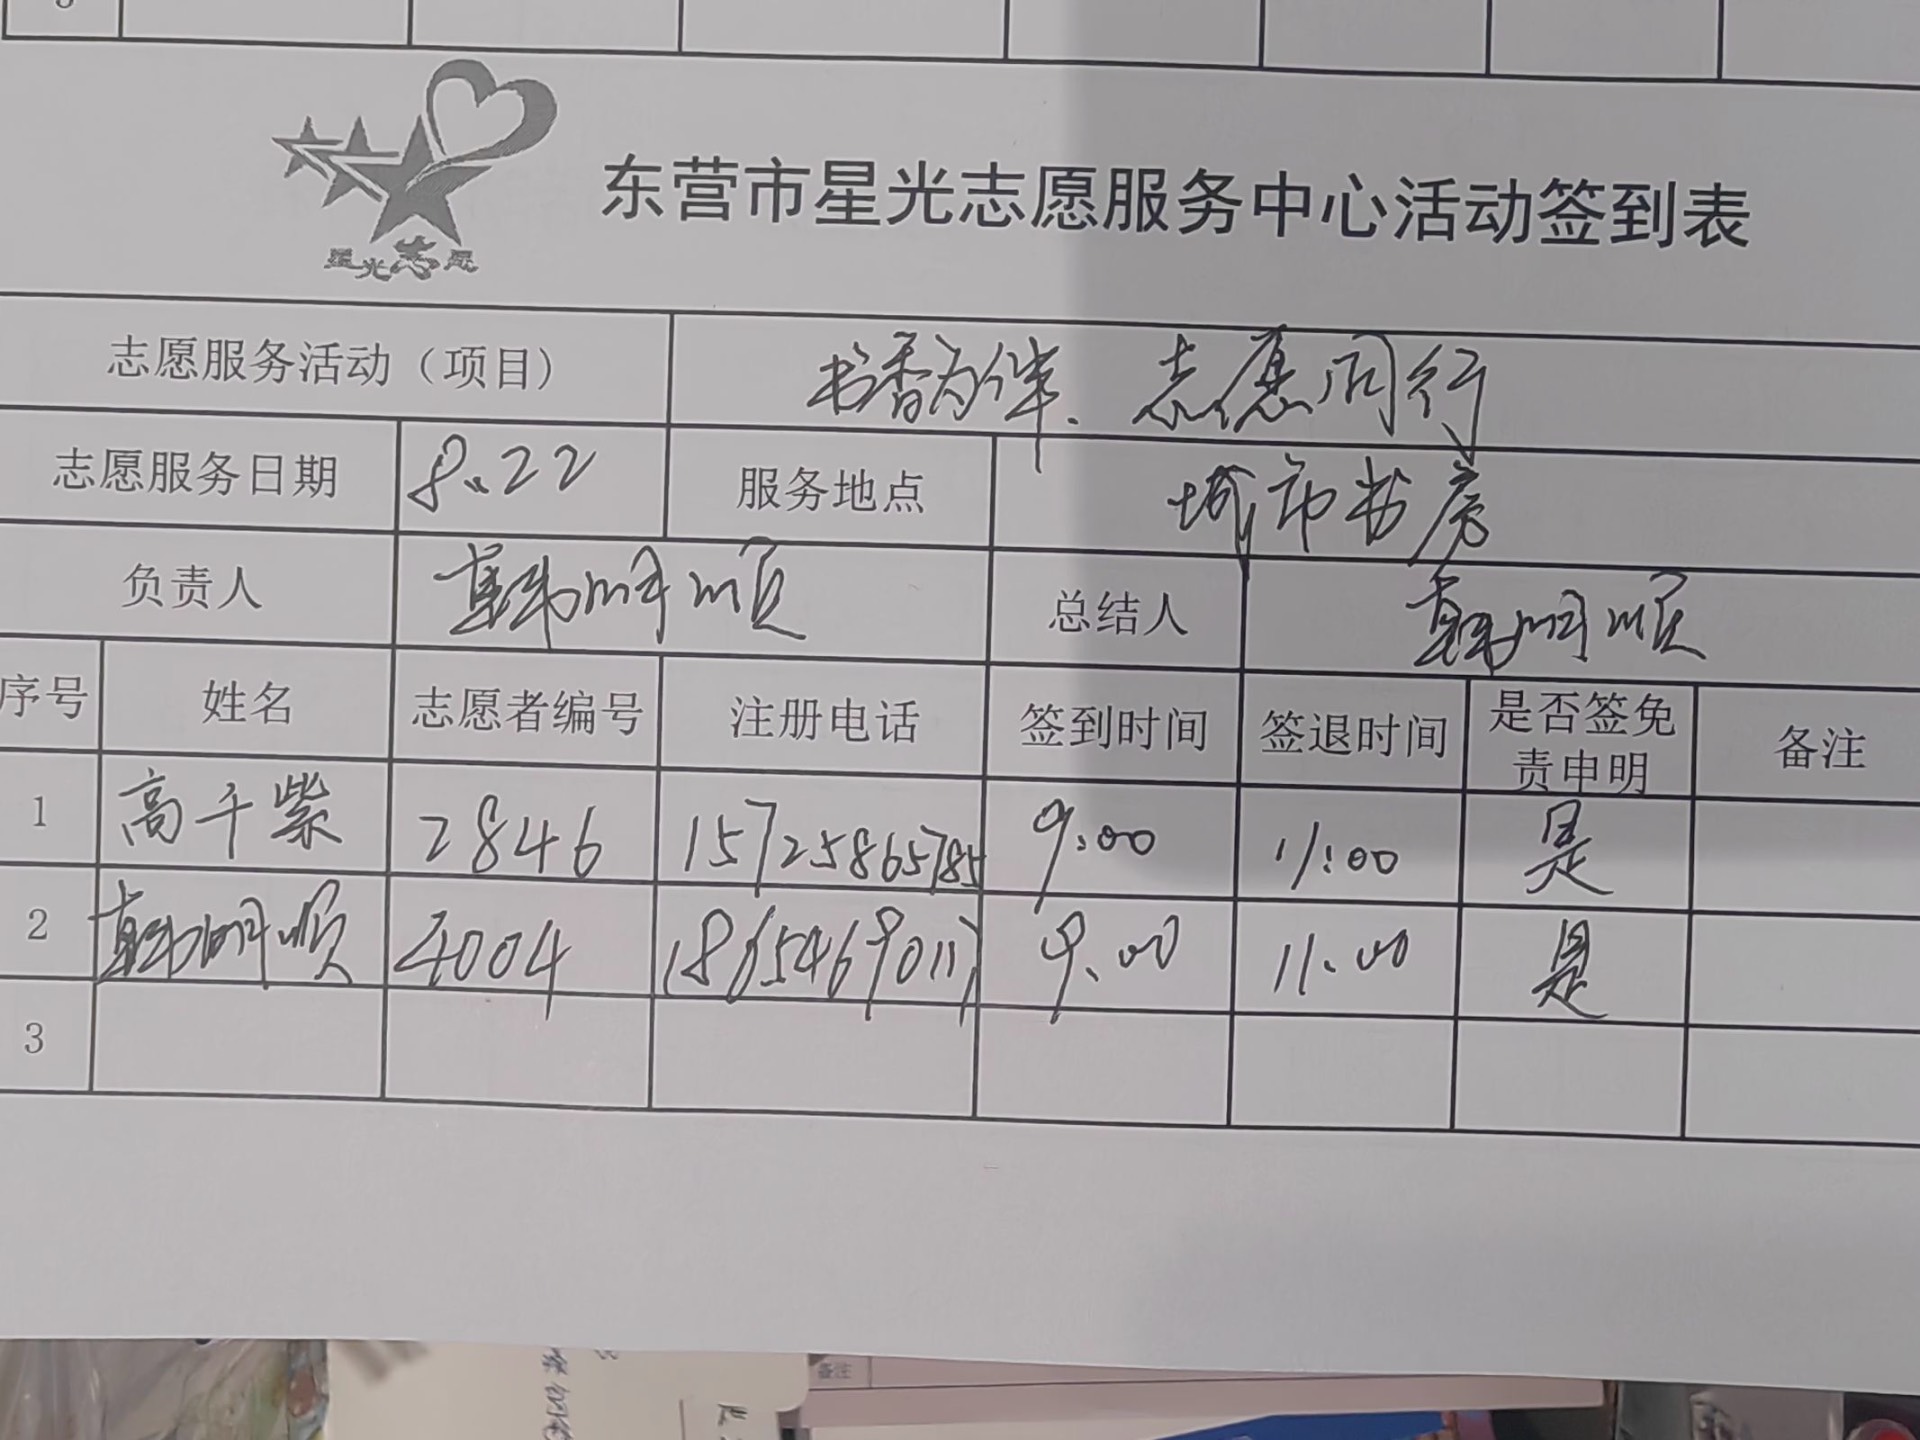 星光志愿
东营市星光志愿服务中心活动签到表
志愿服务活动（项目） 书香为伴、志愿同行
志愿服务日期 8.22 服务地点 城市书房
负责人 韩明顺 总结人 韩明顺
序号 姓名 志愿者编号 注册电话 签到时间 签退时间 是否签免责申明 备注
1 高千紫 2846 15725865785 9:00 11:00 是
2 韩明顺 4004 18654690117 9.00 11.00 是
3
备注